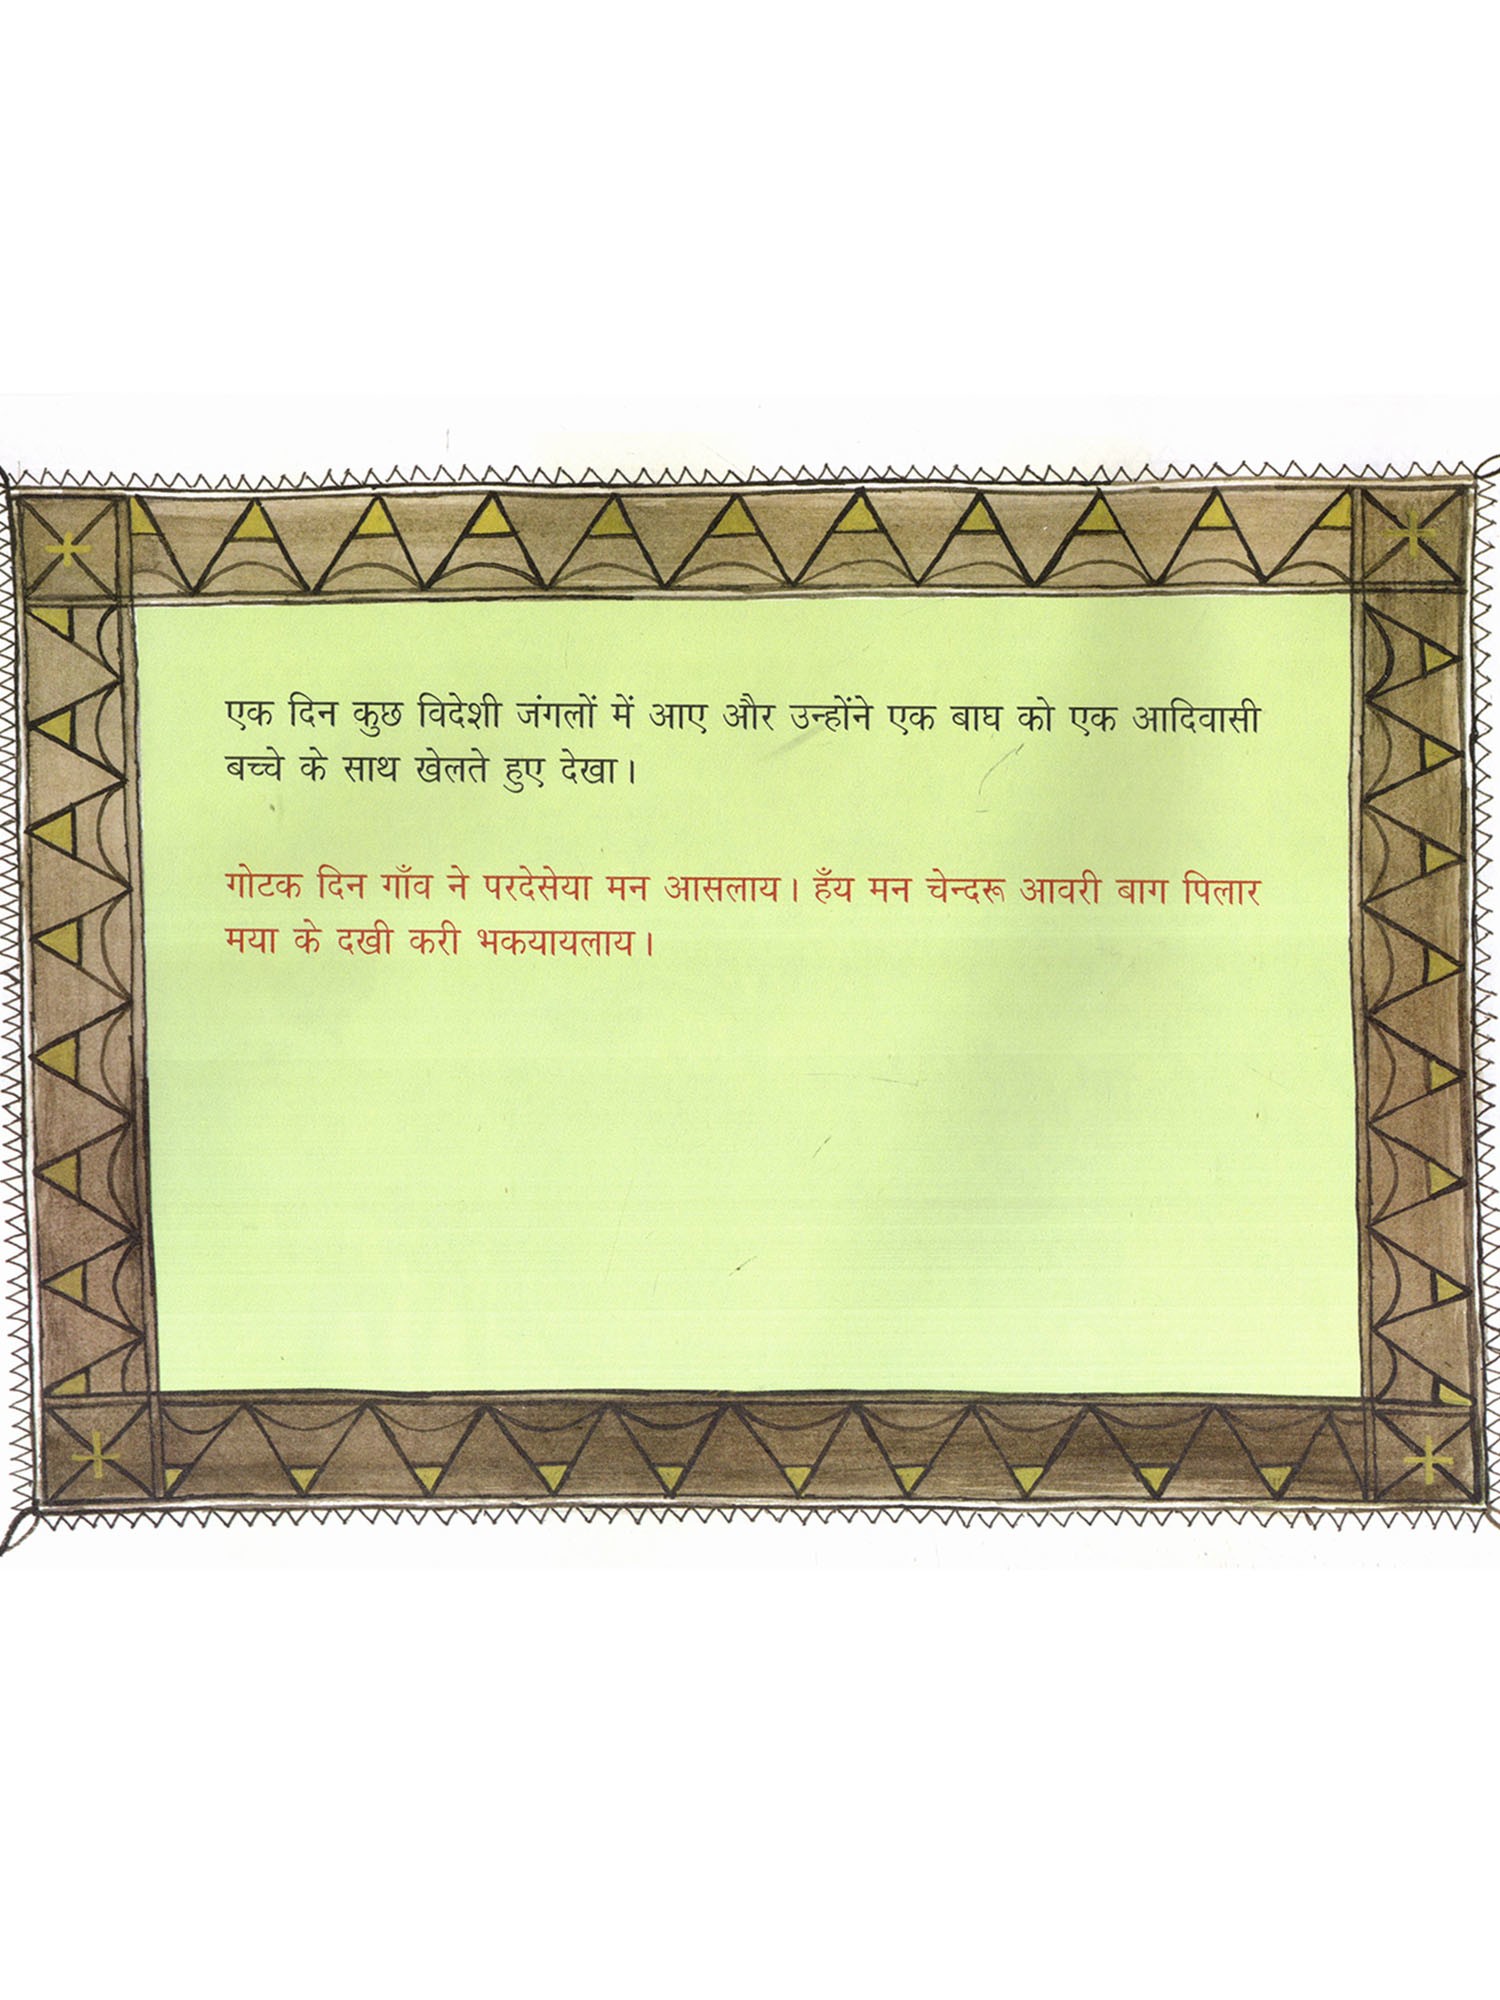 एक दिन कुछ विदेशी जंगलों में आए और उन्होंने एक बाघ को एक आदिवासी
बच्चे के साथ खेलते हुए देखा।
गोटक दिन गाँव ने परदेसेया मन आसलाय। हँय मन चेन्दरू आवरी बाग पिलार
मया के दखी करी भकयायलाय।